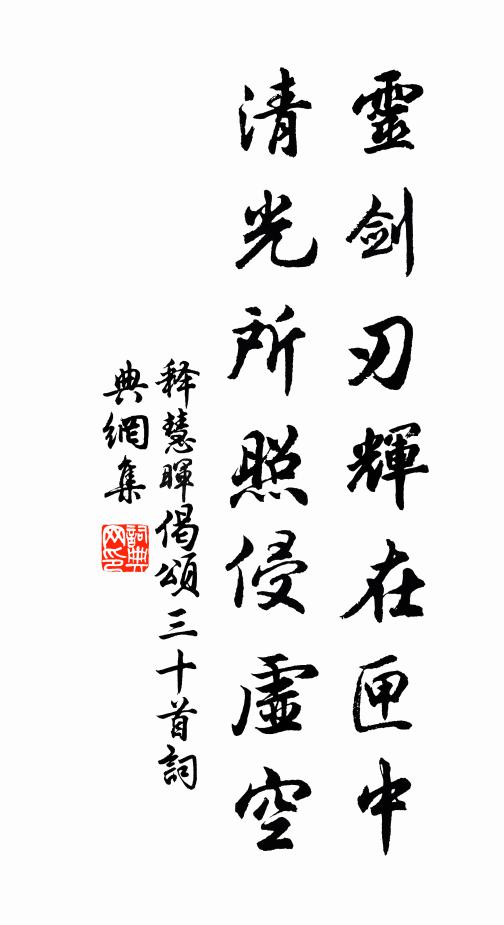 靈劍刃輝在匣中
清光所照侵虛空
释慧暉偈頌三十首詞
典網集
詞典網印